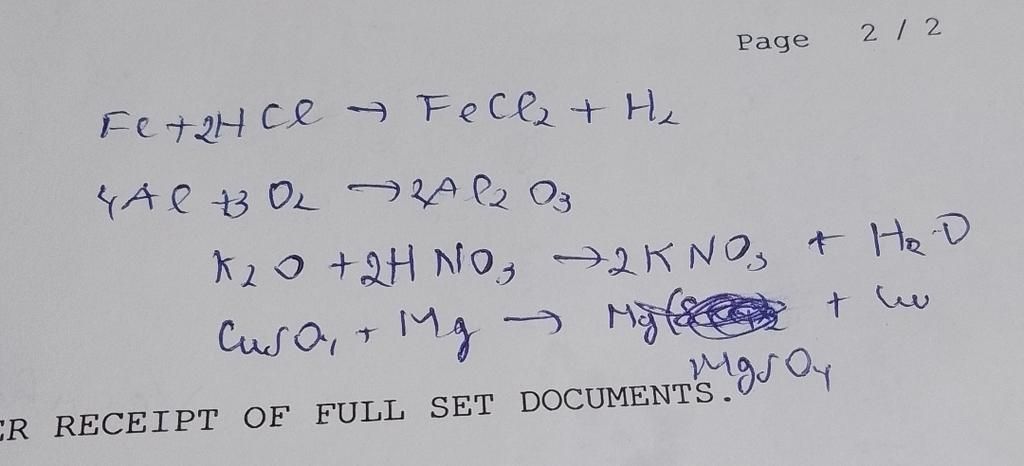 Page 2 / 2
Fe + 2HCl → FeCl₂ + H₂
4Al + 3O₂ → 2Al₂O₃
K₂O + 2HNO₃ → 2KNO₃ + H₂O
CuSO₄ + Mg → Mg + Cu
MgSO₄
ER RECEIPT OF FULL SET DOCUMENTS.